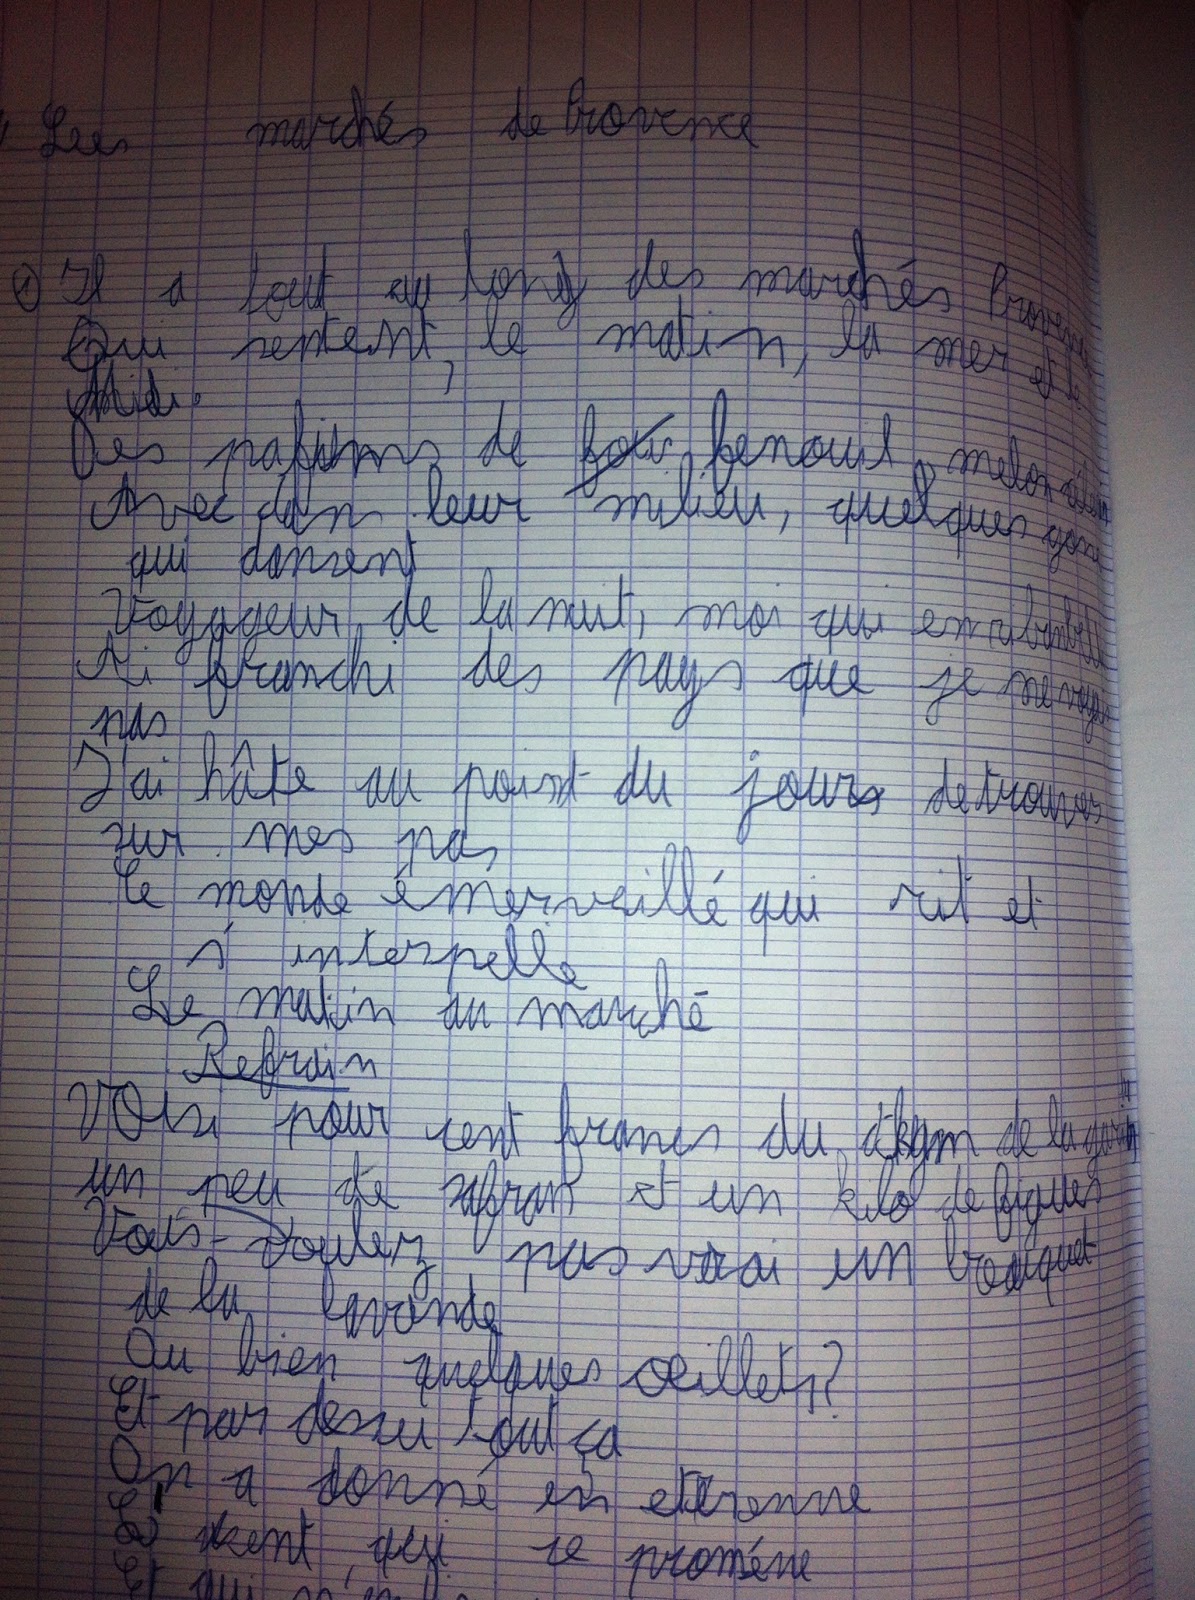 Les marchés de Provence
① Il a tout au long des marchés Provence
Qui sentent, le matin, la mer et le
Midi.
Des pafums de fenouil, melon
Avec dan leur milieu, quelques gons
qui dansent
Voyageur de la nuit, moi qui en
Ai franchi des pays que je ne voyais
pas
J'ai hâte au point du jour de trouver
sur mes pas
Le monde émerveillé qui rit et
s'interpelle
Le matin au marché
Refrain
Voici pour cent francs du thym de la
un peu de safran et un kilo de figues
Vous-voulez pas vrai un
de la lavande
Ou bien quelques œillets?
Et par dessu tout ça
On a donné en etrenne
Le qui se promène
Et qui